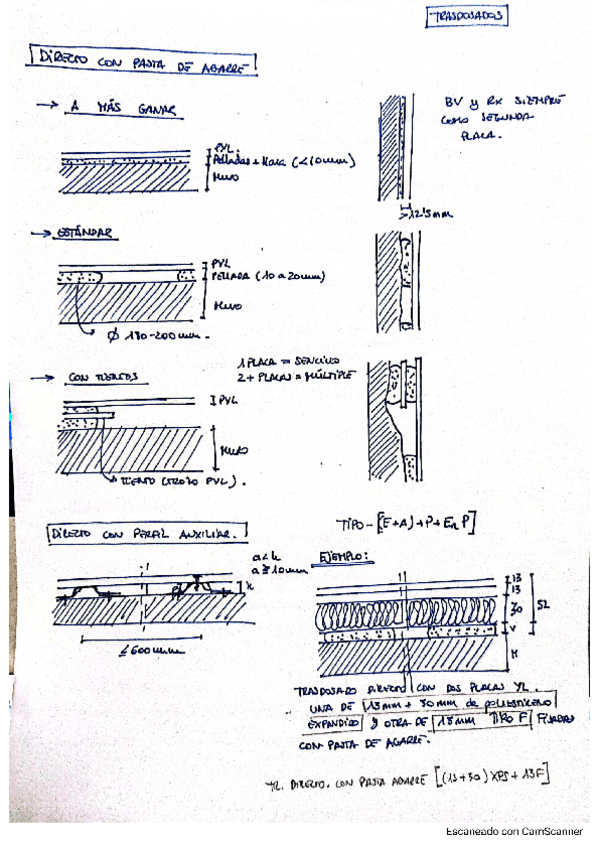 TRASDOSADOS
DIRECTO CON PASTA DE AGARRE
→ A MÁS GANAR
BV y RX SIEMPRE
COMO SEGUNDA
PLACA.
PYL.
PELLADAS + (<10mm)
MURO
>12'5mm
→ ESTÁNDAR
PYL
PELLADA (10 a 20mm)
MURO
Ø 180-200mm.
→ CON TIENTOS
1 PLACA = SENCILLO
2+ PLACAS = MÚLTIPLE
PYL
MURO
TIENTO (TROZO PYL).
TIPO - [(E+A)+P+En P]
DIRECTO CON PERFIL AUXILIAR.
a<h
a≥10mm
h
≤600mm
EJEMPLO:
13
13
30
V
M
52
TRASDOSADO DIRECTO CON DOS PLACAS YL.
UNA DE 13mm + 30mm de POLIESTIRENO
EXPANDIDO y OTRA DE 13mm TIPO F FIJADAS
CON PASTA DE AGARRE.
TR. DIRECTO. CON PASTA AGARRE [(13+30) XPS + 13F]
Escaneado con CamScanner